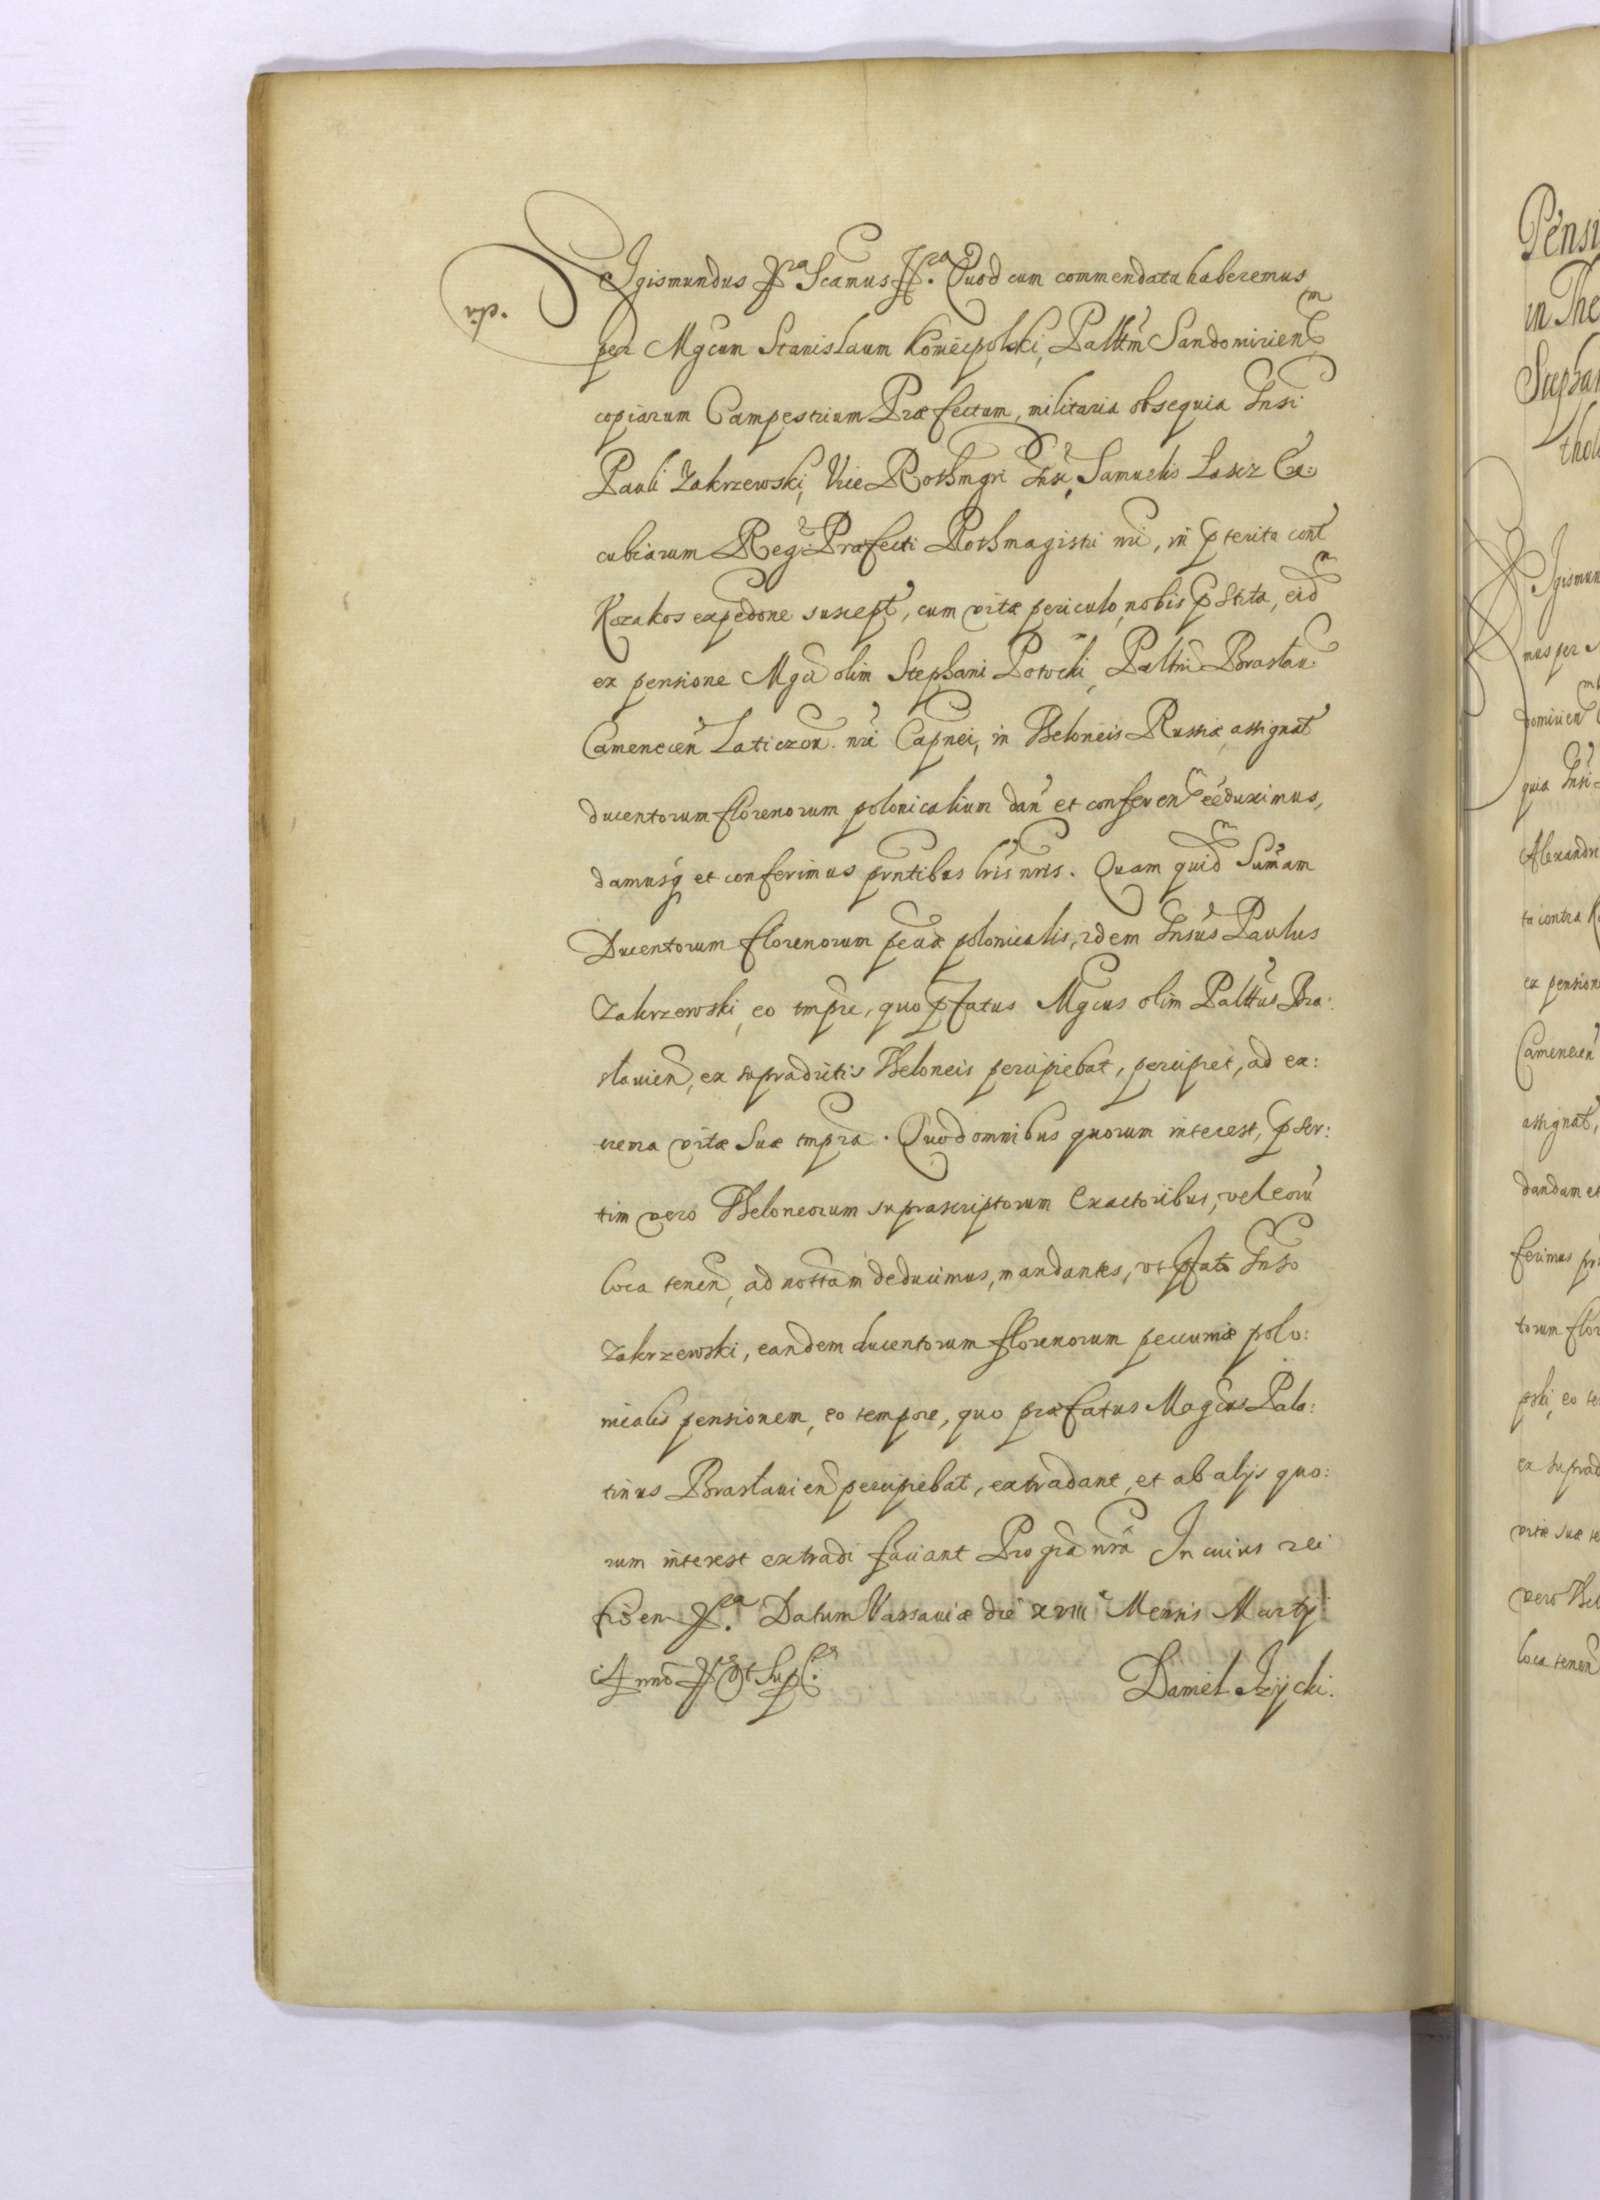 Sigismundus &ra Scamus &ra. Quod cum commendata haberemus
per Mgcum Stanislaum Koniecpolski, Palttm Sandomirienm
copiarum Campestrium Præfectum, militaria obsequia Gnsi
Pauli Zakrzewski, Vice Rothmgri Gnsi, Samuelis Lascz Ex:
cubiarum Reg: Præfecti Rothmagistri nri, in pterita cont
Kozakos expedone suscept, cum vitæ periculo, nobis pstita, eidm
ex pensione Mgci olim Stephani Potocki, Palttni Braslau.
Camenecen Laticzon. nri Capnei, in Theloneis Russiæ, assignat
ducentorum florenorum polonicalium dan et conferen ee duximus,
damusq et conferimus prntibus lris nris. Quam quidm Summam
Ducentorum florenorum pecuæ polonicalis, idem Gnsus Paulus
Zakrzewski, eo tmpre, quo pfatus Mgcus olim Palttus Bra:
slauien, ex supradictis Theloneis percipiebat, percipiet, ad ex:
trema vitæ suæ tmpra. Quod omnibus quorum interest, pser:
tim vero Theloneorum suprascriptorum Exactoribus, vel eoru
loca tenen, ad nottam deducimus, mandantes, ut pfato Gnso
Zakrzewski, eandem ducentorum florenorum pecuniæ polo:
nicalis pensionem, eo tempore, quo præfatus Magcus Pala:
tinus Braslauien percipiebat, extradant, et ab alijs quo:
rum interest extradi faciant Pro gra nra In cuius rei
fidem &ra. Datum Varsauiæ die XVIII Mensis Martij
Anno &ra ut Supra.
Daniel Iżycki.